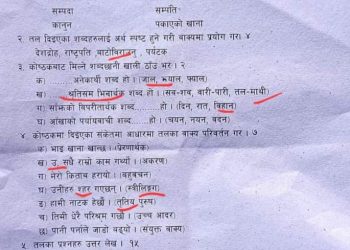 सम्पदा सम्पति
कानुन पकाएको खाना
२. तल दिइएका शब्दहरुलाई अर्थ स्पष्ट हुने गरी वाक्यमा प्रयोग गर। ४
देशद्रोह, राष्ट्रपति, बाटोविराउनु, पर्यटक
३. कोष्ठकबाट मिल्ने शब्दछानी खाली ठाँउ भर। २
क)........ अनेकार्थी शब्द हो। (जाल, भ्याल, फ्याल)
ख)........ श्रुतिसम भिन्नार्थक शब्द हो। (सब-शव, वारी-पारी, तल-माथी)
ग) साँझको विपरीतार्थक शब्द........हो। (दिन, रात, विहान)
घ) आँखाको पर्यायवाची शब्द....हो। (चयन, नयन, वदन)
४. कोष्ठकमा दिइएका संकेतमा आधारमा तलका वाक्य परिवर्तन गर। ७
क) भाइ खाना खान्छ। (प्रेरणार्थक)
ख) उ सधै राम्रो काम गर्थ्यो। (अकरण)
ग) मेरो किताब हरायो। (बहुवचन)
घ) उनीहरु शहर गएछन्। (स्त्रीलिङ्ग)
ङ) हामी नाटक हेर्छौ। (तृतिय पुरुष)
च) तिमी धेरै परिश्रम गर्छौ। (उच्च आदर)
छ) पानी पर्नाले जाडो बढ्यो। (संयुक्त वाक्य)
५ तलका प्रश्नहरु उत्तर लेख। १५